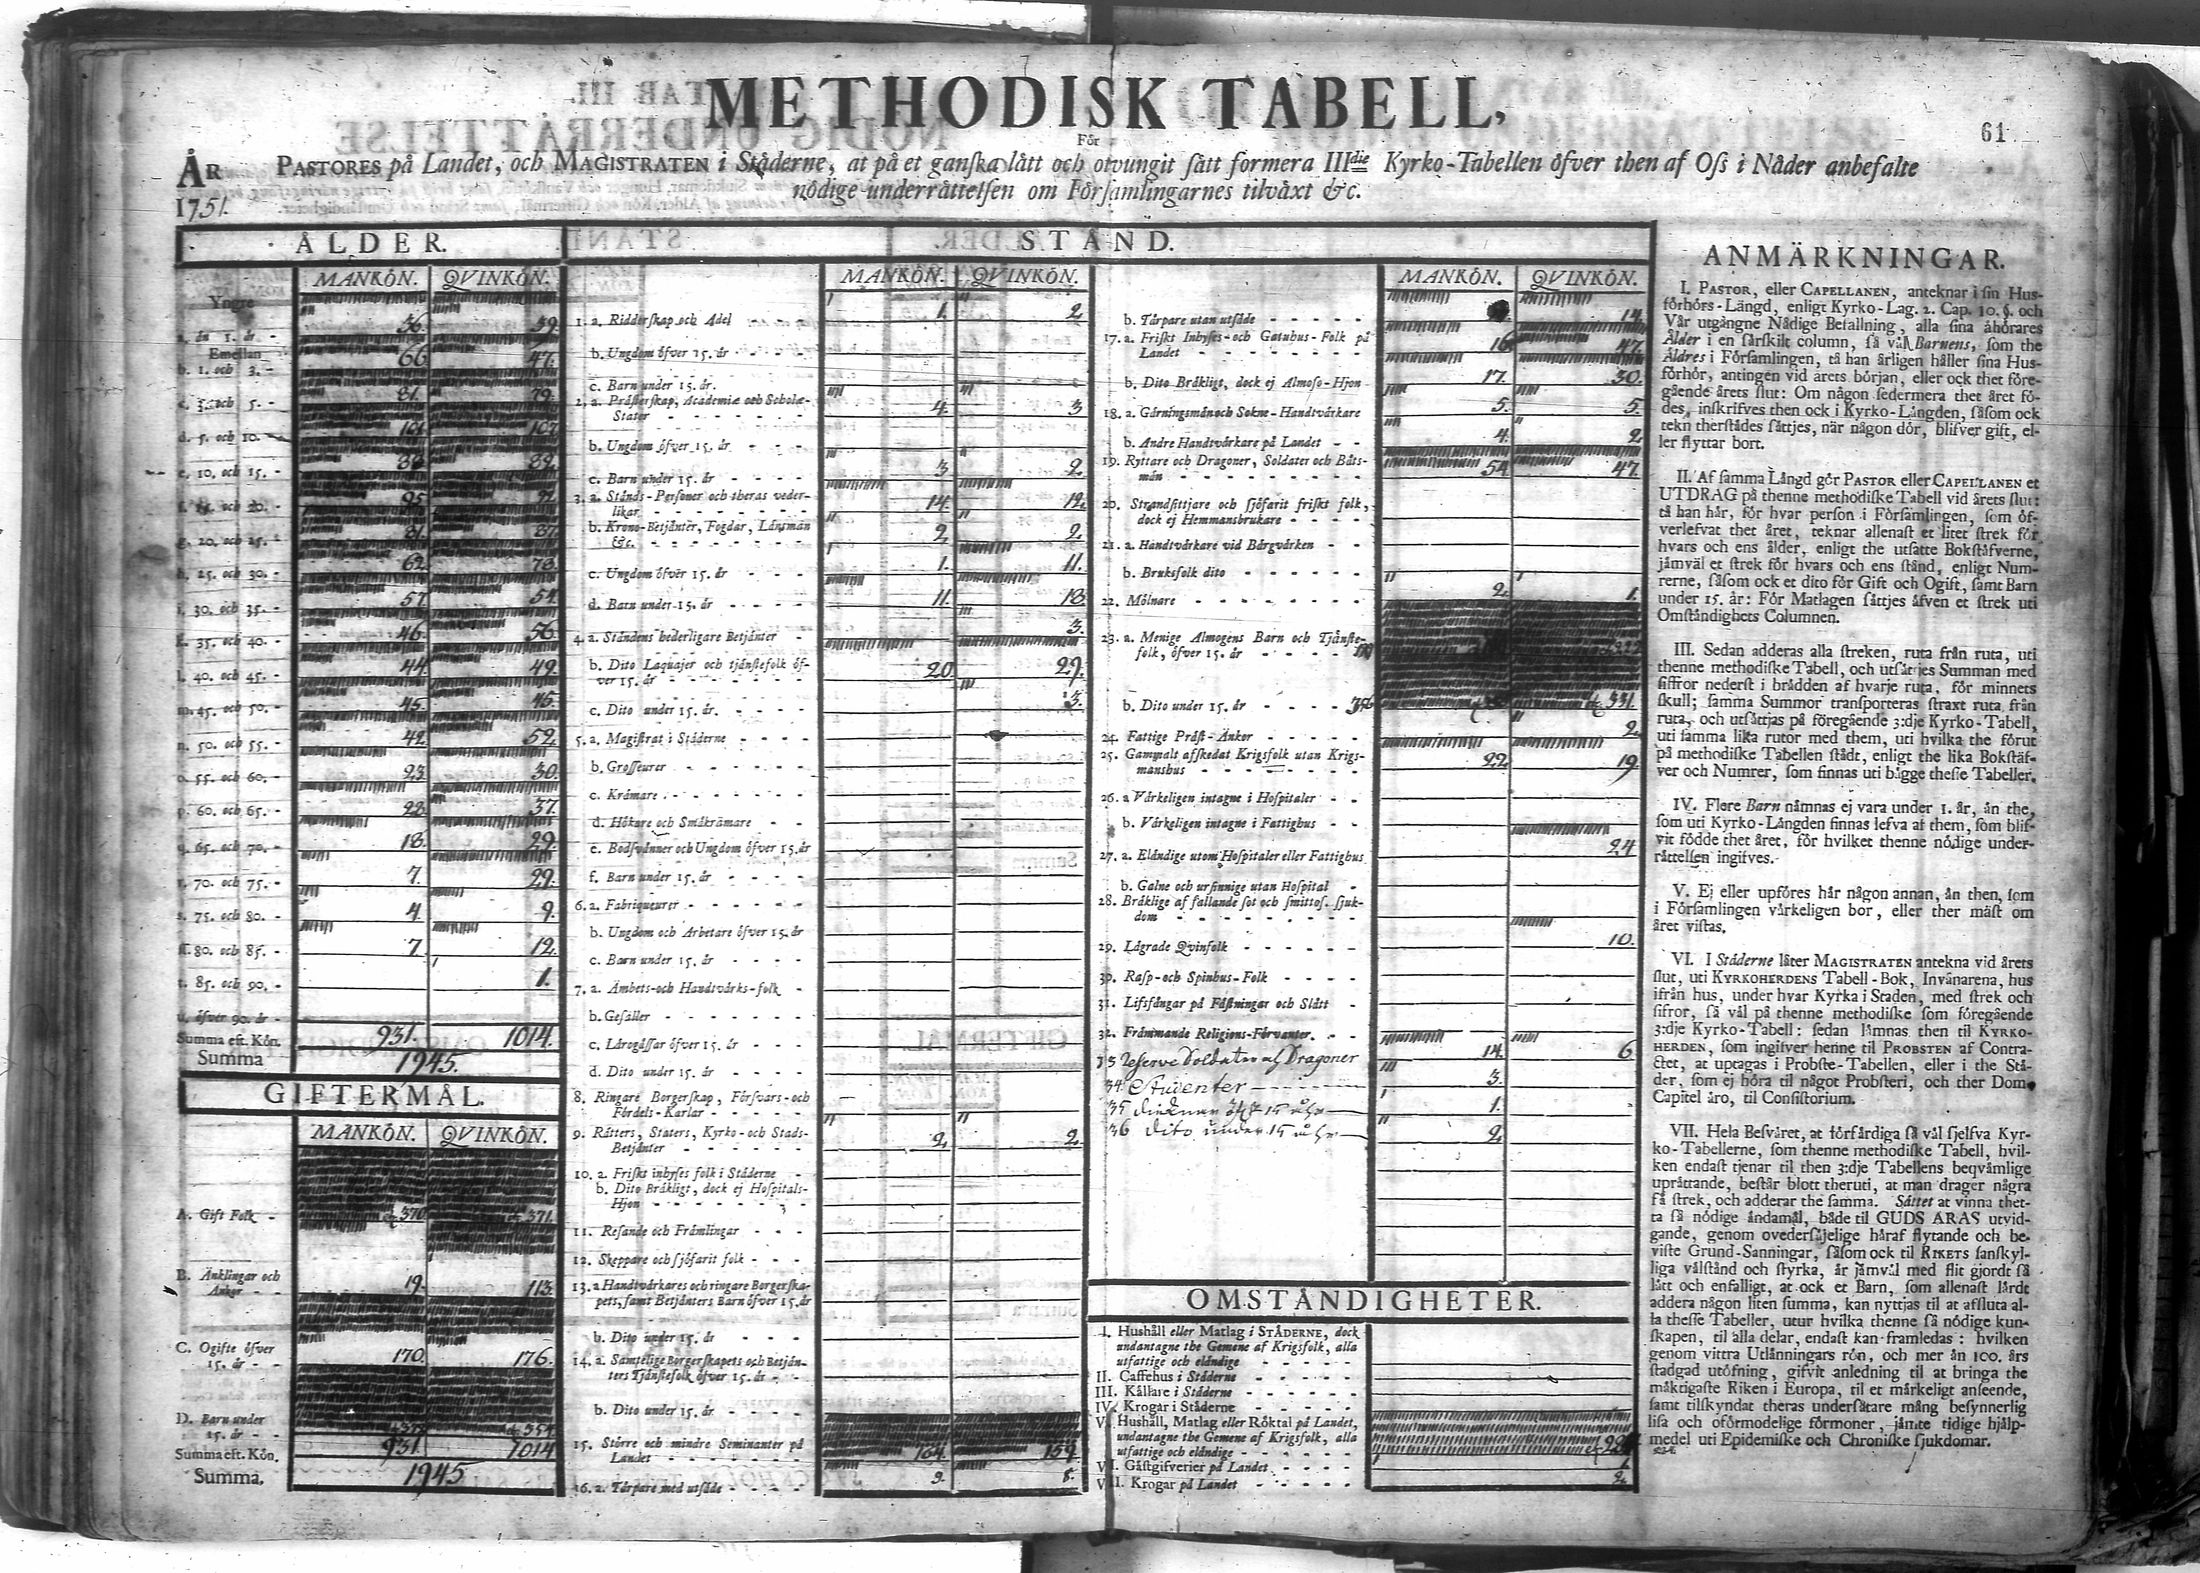 METHODISK TABELL,
61
För
ÅR PASTORES på Landet, och MAGISTRATEN i Städerne, at på et ganska lätt och otvungit sätt formera IIIdie Kyrko-Tabellen öfver then af Oss i Nåder anbefalte
1751. nödige underrättelsen om Församlingarnes tilväxt &c.
ÅLDER.
MANKÖN. QVINKÖN.
Yngre
a. än 1. år - 36. 39.
Emellan
b. 1. och 3. - 66 47.
c. 3. och 5. - 81. 79.
d. 5. och 10. 101. 107.
e. 10. och 15. - 89.
f. 15. och 20. -
g. 20. och 25. - 81. 87.
h. 25. och 30. - 62. 78.
i. 30. och 35. - 57. 54.
k. 35. och 40. - 46. 56.
l. 40. och 45. - 44. 49.
m. 45. och 50. - 45. 45.
n. 50. och 55. - 42. 52.
o. 55. och 60. - 23. 30.
p. 60. och 65. - 22. 37.
q. 65. och 70. - 18. 29.
r. 70. och 75. - 7. 29.
s. 75. och 80. - 4. 9.
ſſ. 80. och 85. - 7. 12.
t. 85. och 90. - 1.
u. öfver 90. år -
Summa eft. Kön. 931. 1014.
Summa 1945.
GIFTERMÅL.
MANKÖN. QVINKÖN.
A. Gift Folk - 370. 371.
B. Änklingar och
Änkor - - 19. 113.
C. Ogifte öfver
15. år - - 170. 176.
D. Barn under
15. år - - 354.
Summa eft. Kön. 931. 1014
Summa, 1945
STÅND.
MANKÖN. QVINKÖN.
1. a. Ridderskap och Adel - - - 1. 2.
b. Ungdom öfver 15. år - - - -
c. Barn under 15. år.
2. a. Prästerskap, Academiæ och Scholæ-
Stater - - - - - - 4. 3
b. Ungdom öfver 15. år - - - -
c. Barn under 15. år - - - - 3. 2.
3. a. Stånds-Personer och theras veder-
likar - - - - - - 14. 12.
b. Krono-Betjänter, Fogdar, Länsmän
&c. - - - - - - 2. 2.
c. Ungdom öfver 15. år - - - 1. 11.
d. Barn under 15. år - - - - 11. 18.
4. a. Ståndens hederligare Betjänter - 3.
b. Dito Laquajer och tjänstefolk öf-
ver 15. år - - - - - - 20. 29.
c. Dito under 15. år. - - - - 3.
5. a. Magistrat i Städerne - - - -
b. Grosseurer - - - - - -
c. Krämare - - - - - - -
d. Hökare och Småkrämare - - -
e. Bodsvänner och Ungdom öfver 15. år
f. Barn under 15. år - - - -
6. a. Fabriqueurer - - - - - -
b. Ungdom och Arbetare öfver 15. år
c. Barn under 15. år - - - -
7. a. Ämbets-och Handtvärks-folk -
b. Gesäller - - - - - - -
c. Lärogåssar öfver 15. år - - -
d. Dito under 15. år - - - -
8. Ringare Borgerskap, Försvars-och
Fördels-Karlar - - - - -
9. Rätters, Staters, Kyrko-och Stads-
Betjänter - - - - - - 2. 2.
10. a. Friskt inhyses folk i Städerne -
b. Dito Bräkligt, dock ej Hospitals-
Hjon - - - - - - -
11. Resande och Främlingar - - -
12. Skeppare och sjöfarit folk - - -
13. a Handtvärkares och ringare Borgerska-
pets, samt Betjänters Barn öfver 15. år
b. Dito under 15. år - - - -
14. a. Samtelige Borgerskapets och Betjän-
ters Tjänstefolk öfver 15. år - -
b. Dito under 15. år - - - -
15. Större och mindre Seminanter på
Landet - - - - - - 164. 159.
16. a. Torpare med utsäde - - - - 9. 8.
MANKÖN. QVINKÖN.
b. Torpare utan utsäde - - - - - 14.
17. a. Friskt Inhyses-och Gatuhus-Folk på
Landet - - - - - - - 16 47.
b. Dito Bräkligt, dock ej Almoso-Hjon 17. 30.
18. a. Gärningsmän och Sokne-Handtvärkare 5. 5.
b. Andre Handtvärkare på Landet - - 4. 2.
19. Ryttare och Dragoner, Soldater och Båts-
män - - - - - - - - 54. 47.
20. Strandsittjare och sjöfarit friskt folk,
dock ej Hemmansbrukare - - - -
21. a. Handtvärkare vid Bärgvärken - -
b. Bruksfolk dito - - - - - -
22. Mölnare - - - - - - - - 2. 1.
23. a. Menige Almogens Barn och Tjänste-
folk, öfver 15. år - - - - -
b. Dito under 15. år - - - - 356 331.
24. Fattige Präst-Änkor - - - - - 2.
25. Gammalt afskedat Krigsfolk utan Krigs-
manshus - - - - - - - 22. 19.
26. a Värkeligen intagne i Hospitaler - -
b. Värkeligen intagne i Fattighus - -
27. a. Eländige utom Hospitaler eller Fattighus 24.
b. Galne och ursinnige utan Hospital -
28. Bräklige af fallande sot och smittos. sjuk-
dom - - - - - - - -
29. Lägrade Qvinfolk - - - - - 10.
30. Rasp-och Spinhus-Folk - - - -
31. Lifsfångar på Fästningar och Slått -
32. Främmande Religions-Förvanter. - -
33 Reserve Soldater af Dragoner 14. 6.
34. Studenter - - - - 3.
35 öfver 15 åhr 1.
36 dito under 15 åhr 2.
OMSTÄNDIGHETER.
I. Hushåll eller Matlag i STÄDERNE, dock
undantagne the Gemene af Krigsfolk, alla
utfattige och eländige - - - - -
II. Caffehus i Städerne - - - - -
III. Källare i Städerne - - - - -
IV. Krogar i Städerne - - - - -
V. Hushåll, Matlag eller Röktal på Landet,
undantagne the Gemene af Krigsfolk, alla
utfattige och eländige - - - - -
VI. Gästgifverier på Landet - - - - 1.
VII. Krogar på Landet - - - - - 2.
ANMÄRKNINGAR.
I. PASTOR, eller CAPELLANEN, anteknar i sin Hus-
förhörs-Längd, enligt Kyrko-Lag. 2. Cap. 10. §. och
Vår utgångne Nådige Befallning, alla sina åhörares
Ålder i en särskilt column, så väl Barnens, som the
Äldres i Församlingen, tå han årligen håller sina Hus-
förhör, antingen vid årets början, eller ock thet före-
gående årets slut: Om någon sedermera thet året fö-
des, inskrifves then ock i Kyrko-Längden, såsom ock
tekn therstädes sättjes, när någon dör, blifver gift, el-
ler flyttar bort.
II. Af samma Längd gör PASTOR eller CAPELLANEN et
UTDRAG på thenne methodiske Tabell vid årets slut:
tå han här, för hvar person i Församlingen, som öf-
verlefvat thet året, teknar allenast et litet strek för
hvars och ens ålder, enligt the utsatte Bokstäfverne,
jämväl et strek för hvars och ens stånd, enligt Num-
rerne, såsom ock et dito för Gift och Ogift, samt Barn
under 15. år: För Matlagen sättjes äfven et strek uti
Omständighets Columnen.
III. Sedan adderas alla streken, ruta från ruta, uti
thenne methodiske Tabell, och utsättjes Summan med
siffror nederst i brädden af hvarje ruta, för minnets
skull; samma Summor transporteras straxt ruta från
ruta, och utsättjas på föregående 3:dje Kyrko-Tabell,
uti samma lika rutor med them, uti hvilka the förut
på methodiske Tabellen stådt, enligt the lika Bokstäf-
ver och Numrer, som finnas uti bägge thesse Tabeller.
IV. Flere Barn nämnas ej vara under 1. år, än the,
som uti Kyrko-Längden finnas lefva af them, som blif-
vit födde thet året, för hvilket thenne nödige under-
rättelsen ingifves.
V. Ej eller upföres här någon annan, än then, som
i Församlingen värkeligen bor, eller ther mäst om
året vistas.
VI. I Städerne låter MAGISTRATEN antekna vid årets
slut, uti KYRKOHERDENS Tabell-Bok, Invånarena, hus
ifrån hus, under hvar Kyrka i Staden, med strek och
sifror, så väl på thenne methodiske som föregående
3:dje Kyrko-Tabell: sedan lämnas then til KYRKO-
HERDEN, som ingifver henne til PROBSTEN af Contra-
ctet, at uptagas i Probste-Tabellen, eller i the Stä-
der, som ej höra til något Probsteri, och ther Dom-
Capitel äro, til Consistorium.
VII. Hela Besväret, at förfärdiga så väl sjelfva Kyr-
ko-Tabellerne, som thenne methodiske Tabell, hvil-
ken endast tjenar til then 3:dje Tabellens beqvämlige
uprättande, består blott theruti, at man drager några
få strek, och adderar the samma. Sättet at vinna thet-
ta så nödige ändamål, både til GUDS ÄRAS utvid-
gande, genom ovedersäjelige häraf flytande och be-
viste Grund-Sanningar, såsom ock til RIKETS sanskyl-
liga välstånd och styrka, är jämväl med flit gjordt så
lätt och enfalligt, at ock et Barn, som allenast lärdt
addera någon liten summa, kan nyttjas til at afsluta al-
la thesse Tabeller, utur hvilka thenne så nödige kun-
skapen, til alla delar, endast kan framledas: hvilken
genom vittra Utlänningars rön, och mer än 100. års
stadgad utöfning, gifvit anledning til at bringa the
mäktigaste Riken i Europa, til et märkeligt anseende,
samt tilskyndat theras undersåtare mång besynnerlig
lisa och oförmodelige förmoner, jämte tidige hjälp-
medel uti Epidemiske och Chroniske sjukdomar.